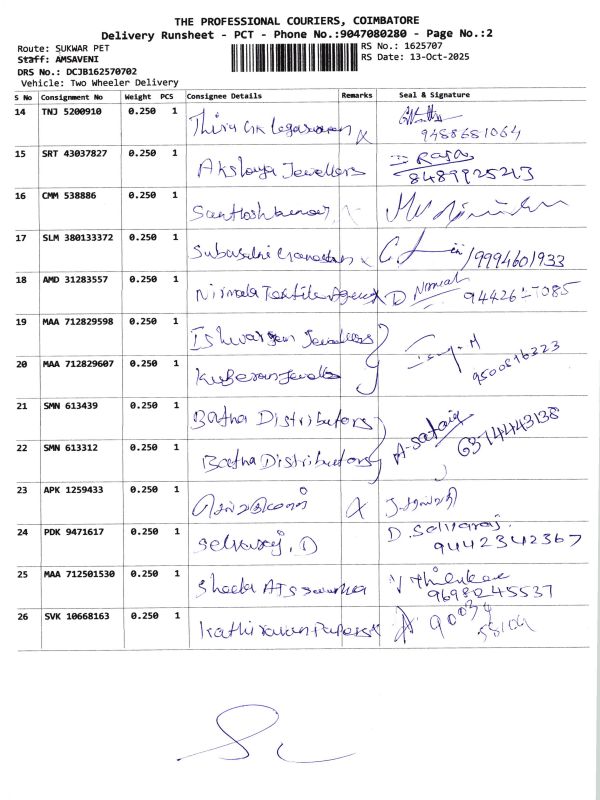 THE PROFESSIONAL COURIERS, COIMBATORE
Delivery Runsheet - PCT - Phone No.:9047080280 - Page No.:2
Route: SUKWAR PET
Staff: AMSAVENI
DRS No.: DCJB162570702
Vehicle: Two Wheeler Delivery
RS No.: 1625707
RS Date: 13-Oct-2025
S No Consignment No Weight PCS Consignee Details Remarks Seal & Signature
14 TNJ 5200910 0.250 1 Thiru
9488681064
15 SRT 43037827 0.250 1 Akshaya Jewellers Raja
8489925213
16 CMM 538886 0.250 1 Santhoshkumar
17 SLM 380133372 0.250 1 9994601933
18 AMD 31283557 0.250 1 Nirmala Textile Agency D Nirmal
19 MAA 712829598 0.250 1 Ishwaryam Jewellers
20 MAA 712829607 0.250 1 Kuberan Jewells 9500816323
21 SMN 613439 0.250 1 Bafna Distributors
22 SMN 613312 0.250 1 Bafna Distributors A-sataiq 6374443138
23 APK 1259433 0.250 1
24 PDK 9471617 0.250 1 Selvaraj. D D. Selvaraj.
9442342367
25 MAA 712501530 0.250 1 Sheela
9698245537
26 SVK 10668163 0.250 1 Kathiravan Papers 90034